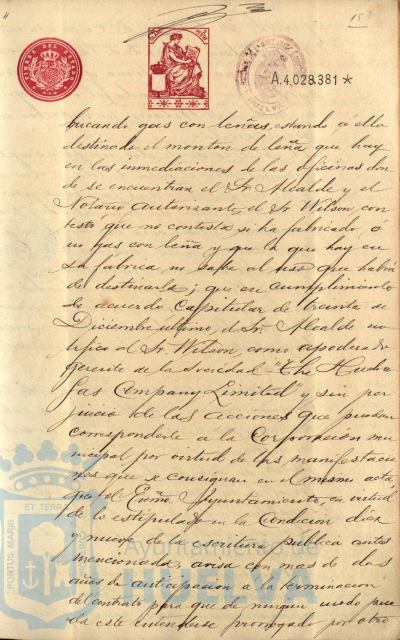 A.4.028.381*
TIMBRE DEL ESTADO
bricando gas con leñas, estando a ello
destinado el monton de leña que hay
en las inmediaciones de las oficinas don
de se encuentran el Sr. Alcalde y el
Notario autorizante, el Sr. Wilson, con
testó que no contesta si ha fabricado o
no gas con leña y que la que hay en
la fábrica no sabe al uso que habrá
de destinarla; que en cumplimiento
de acuerdo Capitular de treinta de
Diciembre último, el Sr. Alcalde no
tifica al Sr. Wilson, como apoderado
gerente de la Sociedad "The Huelva
Gas Company Limited" y sin per
juicio de las acciones que puedan
corresponderle a la Corporación mu
nicipal por virtud de las manifestacio
nes que se consignan en el mismo acta,
que el Excmo Ayuntamiento, en virtud
de lo estipulado en la Condición diez
y nueve de la escritura pública antes
mencionada, avisa con mas de dos
años de anticipacion a la terminacion
del contrato para que de ningun modo pue
da este entenderse prorrogado por otro
PORTUS MARIS
ET TERRAE
Ayuntamiento de
HUELVA